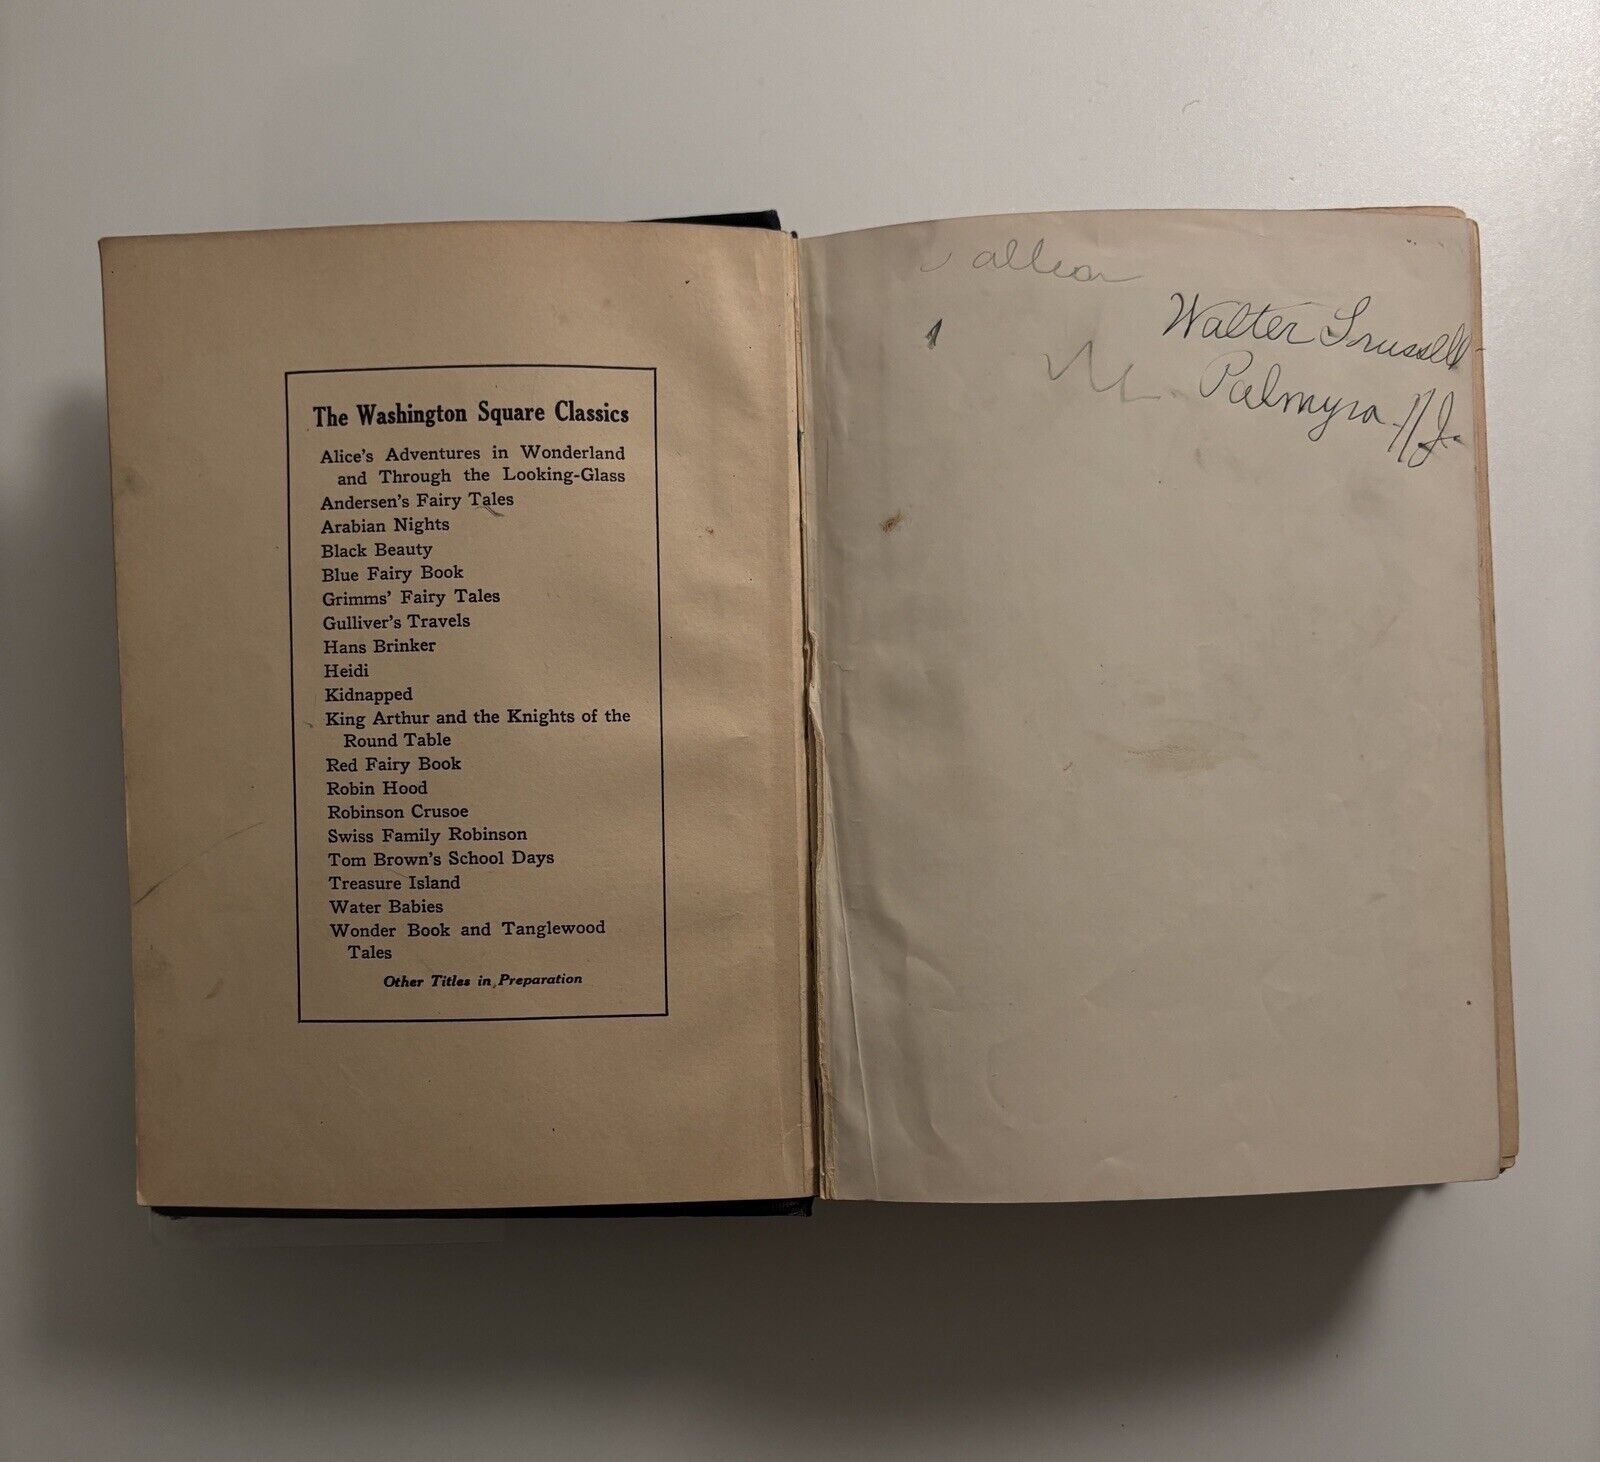 The Washington Square Classics
Alice's Adventures in Wonderland
and Through the Looking-Glass
Andersen's Fairy Tales
Arabian Nights
Black Beauty
Blue Fairy Book
Grimms' Fairy Tales
Gulliver's Travels
Hans Brinker
Heidi
Kidnapped
King Arthur and the Knights of the
Round Table
Red Fairy Book
Robin Hood
Robinson Crusoe
Swiss Family Robinson
Tom Brown's School Days
Treasure Island
Water Babies
Wonder Book and Tanglewood
Tales
Other Titles in Preparation
Walter Trussell
Palmyra N.J.